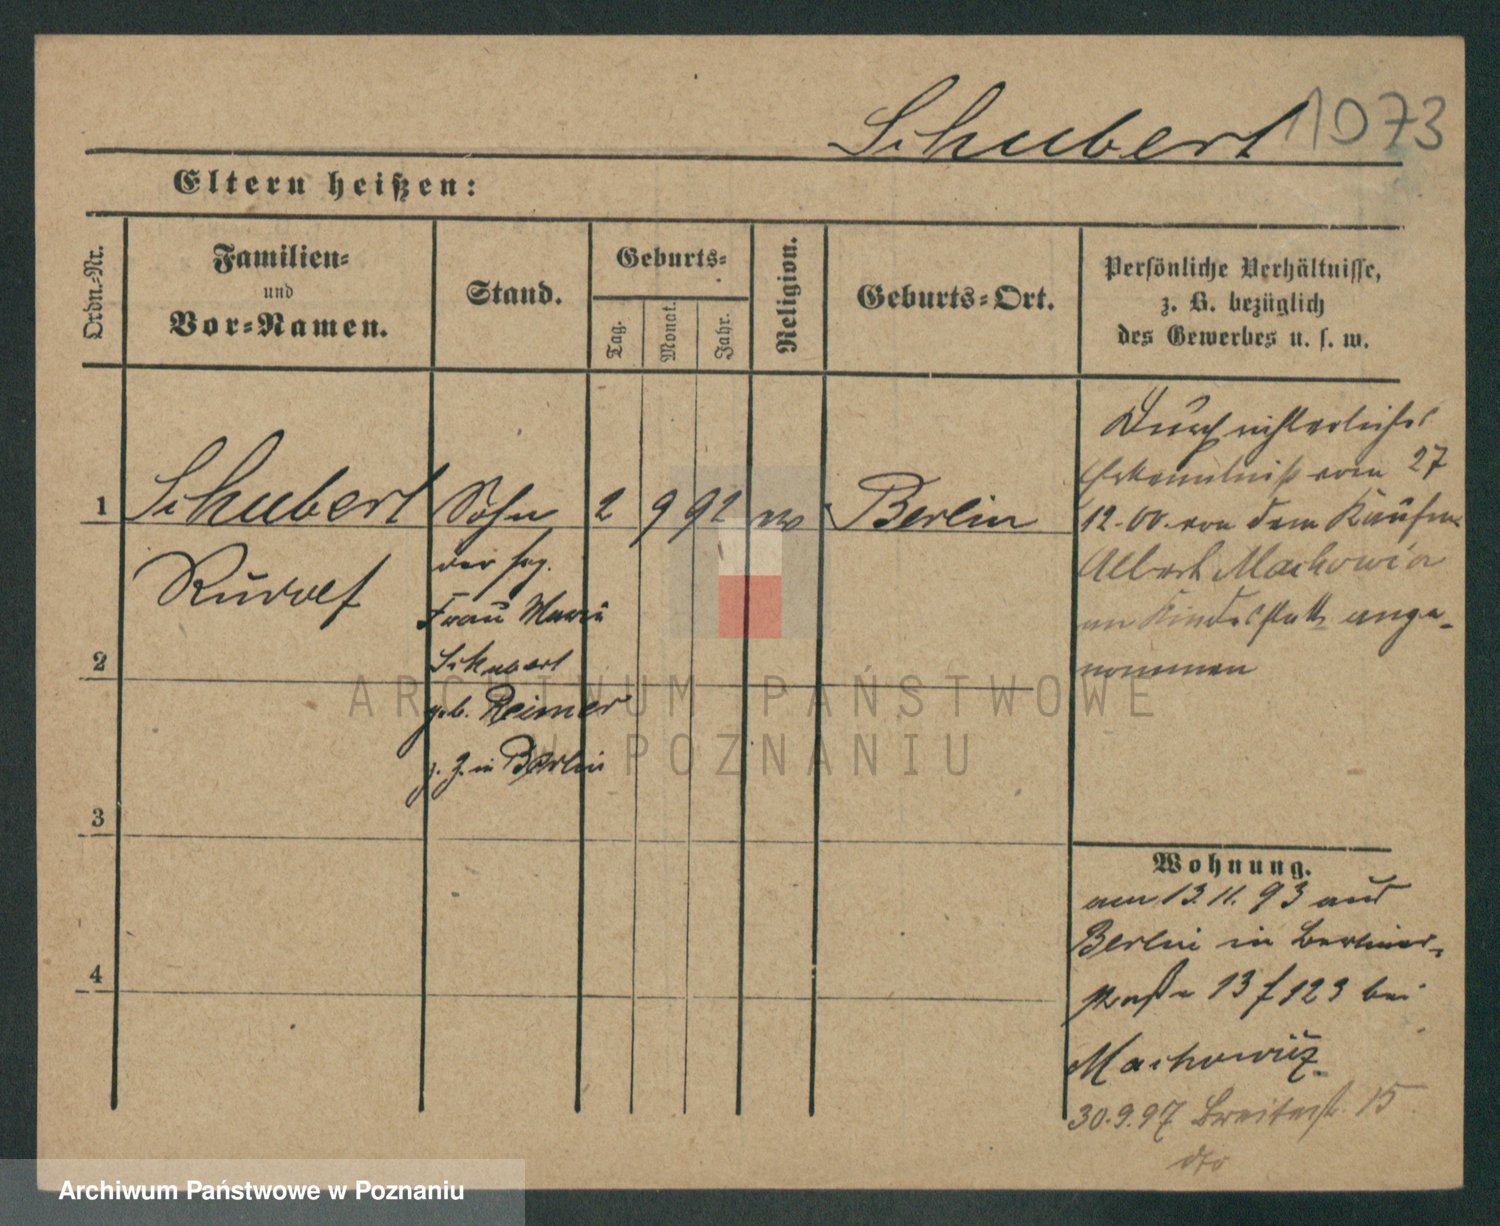 Schubert 1073
Eltern heißen:
Ordn.-Nr.
Familien-
und
Vor-Namen.
Stand.
Geburts-
Tag.
Monat.
Jahr.
Religion.
Geburts-Ort.
Persönliche Verhältnisse,
z. B. bezüglich
des Gewerbes u. s. w.
1 Schubert Sohn 2 9 92 Berlin
Rudolf
der
Frau Marie
Schubert
geb. Reimer
z. Z. in Berlin
2
3
4
Durch richterliches
Erkenntniß vom 27
12.00 von dem Kaufm
Albert Machowicz
an Kindesstatt ange-
nommen
Wohnung.
am 13.11.93 aus
Berlin in Berliner-
straße 13 f 123 bei
Machowicz
30.9.97 Breitestr. 15
dto
ARCHIWUM PAŃSTWOWE
W POZNANIU
Archiwum Państwowe w Poznaniu